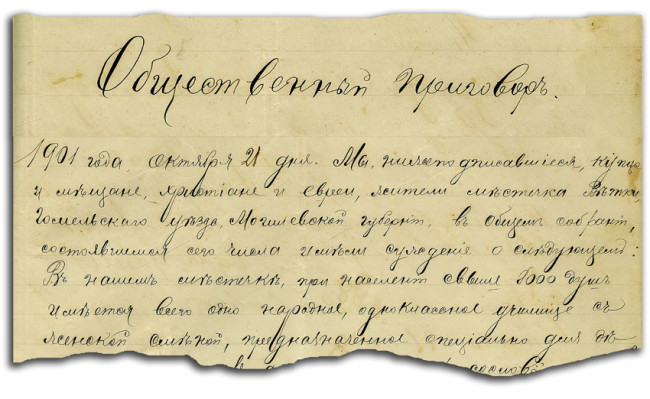 Общественный приговоръ.
1901 года октября 21 дня. Мы, нижеподписавшіеся, купцы
и мѣщане, христіане и евреи, жители мѣстечка Вѣтки,
Гомельскаго уѣзда, Могилевской губерніи, въ общемъ собраніи,
состоявшемся сего числа имѣли сужденіе о слѣдующемъ:
Въ нашемъ мѣстечкѣ, при населеніи свыше душъ
имѣется всего одно народное, одноклассное училище съ
женской смѣной, предназначенное спеціально для дѣ